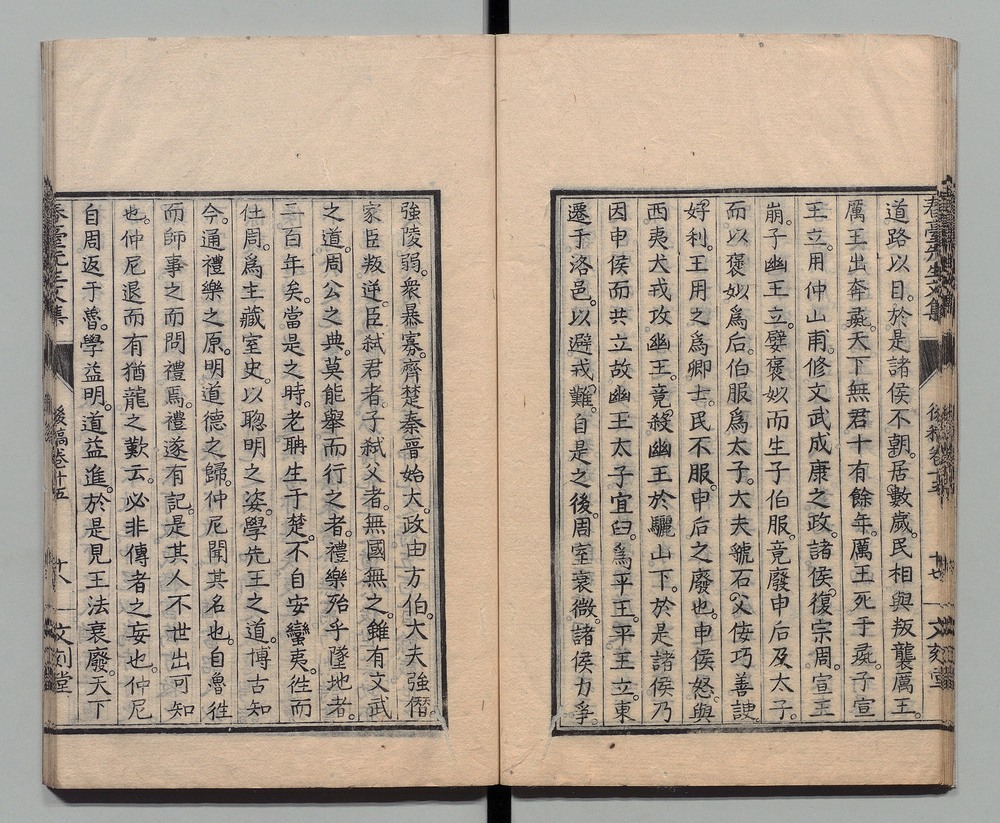 道路以目。於是諸侯不朝。居數歲。民相與叛襲厲王。
厲王出奔彘。天下無君十有餘年。厲王死于彘。子宣
王立。用仲山甫。修文武成康之政。諸侯復宗周。宣王
崩。子幽王立。嬖褒姒而生子伯服。竟廢申后及太子。
而以褒姒爲后。伯服爲太子。大夫虢石父佞巧善諛
好利。王用之爲卿士。民不服。申后之廢也。申侯怒。與
西夷犬戎攻幽王。竟殺幽王於驪山下。於是諸侯乃
因申侯而共立故幽王太子宜臼。爲平王。平王立。東
遷于洛邑。以避戎難。自是之後。周室衰微。諸侯力爭。
春臺先生文集
後稿卷十五
十七
文刻堂
強陵弱。衆暴寡。齊楚秦晉始大。政由方伯。大夫強僭。
家臣叛逆。臣弑君者。子弑父者。無國無之。雖有文武
之道。周公之典。莫能舉而行之者。禮樂殆乎墜地者。
二百年矣。當是之時。老聃生于楚。不自安蠻夷。徃而
仕周。爲主藏室史。以聰明之姿。學先王之道。博古知
今。通禮樂之原。明道德之歸。仲尼聞其名也。自魯徃
而師事之而問禮焉。禮遂有記。是其人不世出可知
也。仲尼退而有猶龍之歎云。必非傳者之妄也。仲尼
自周返于魯。學益明。道益進。於是見王法衰廢。天下
春臺先生文集
後稿卷十五
十八
文刻堂